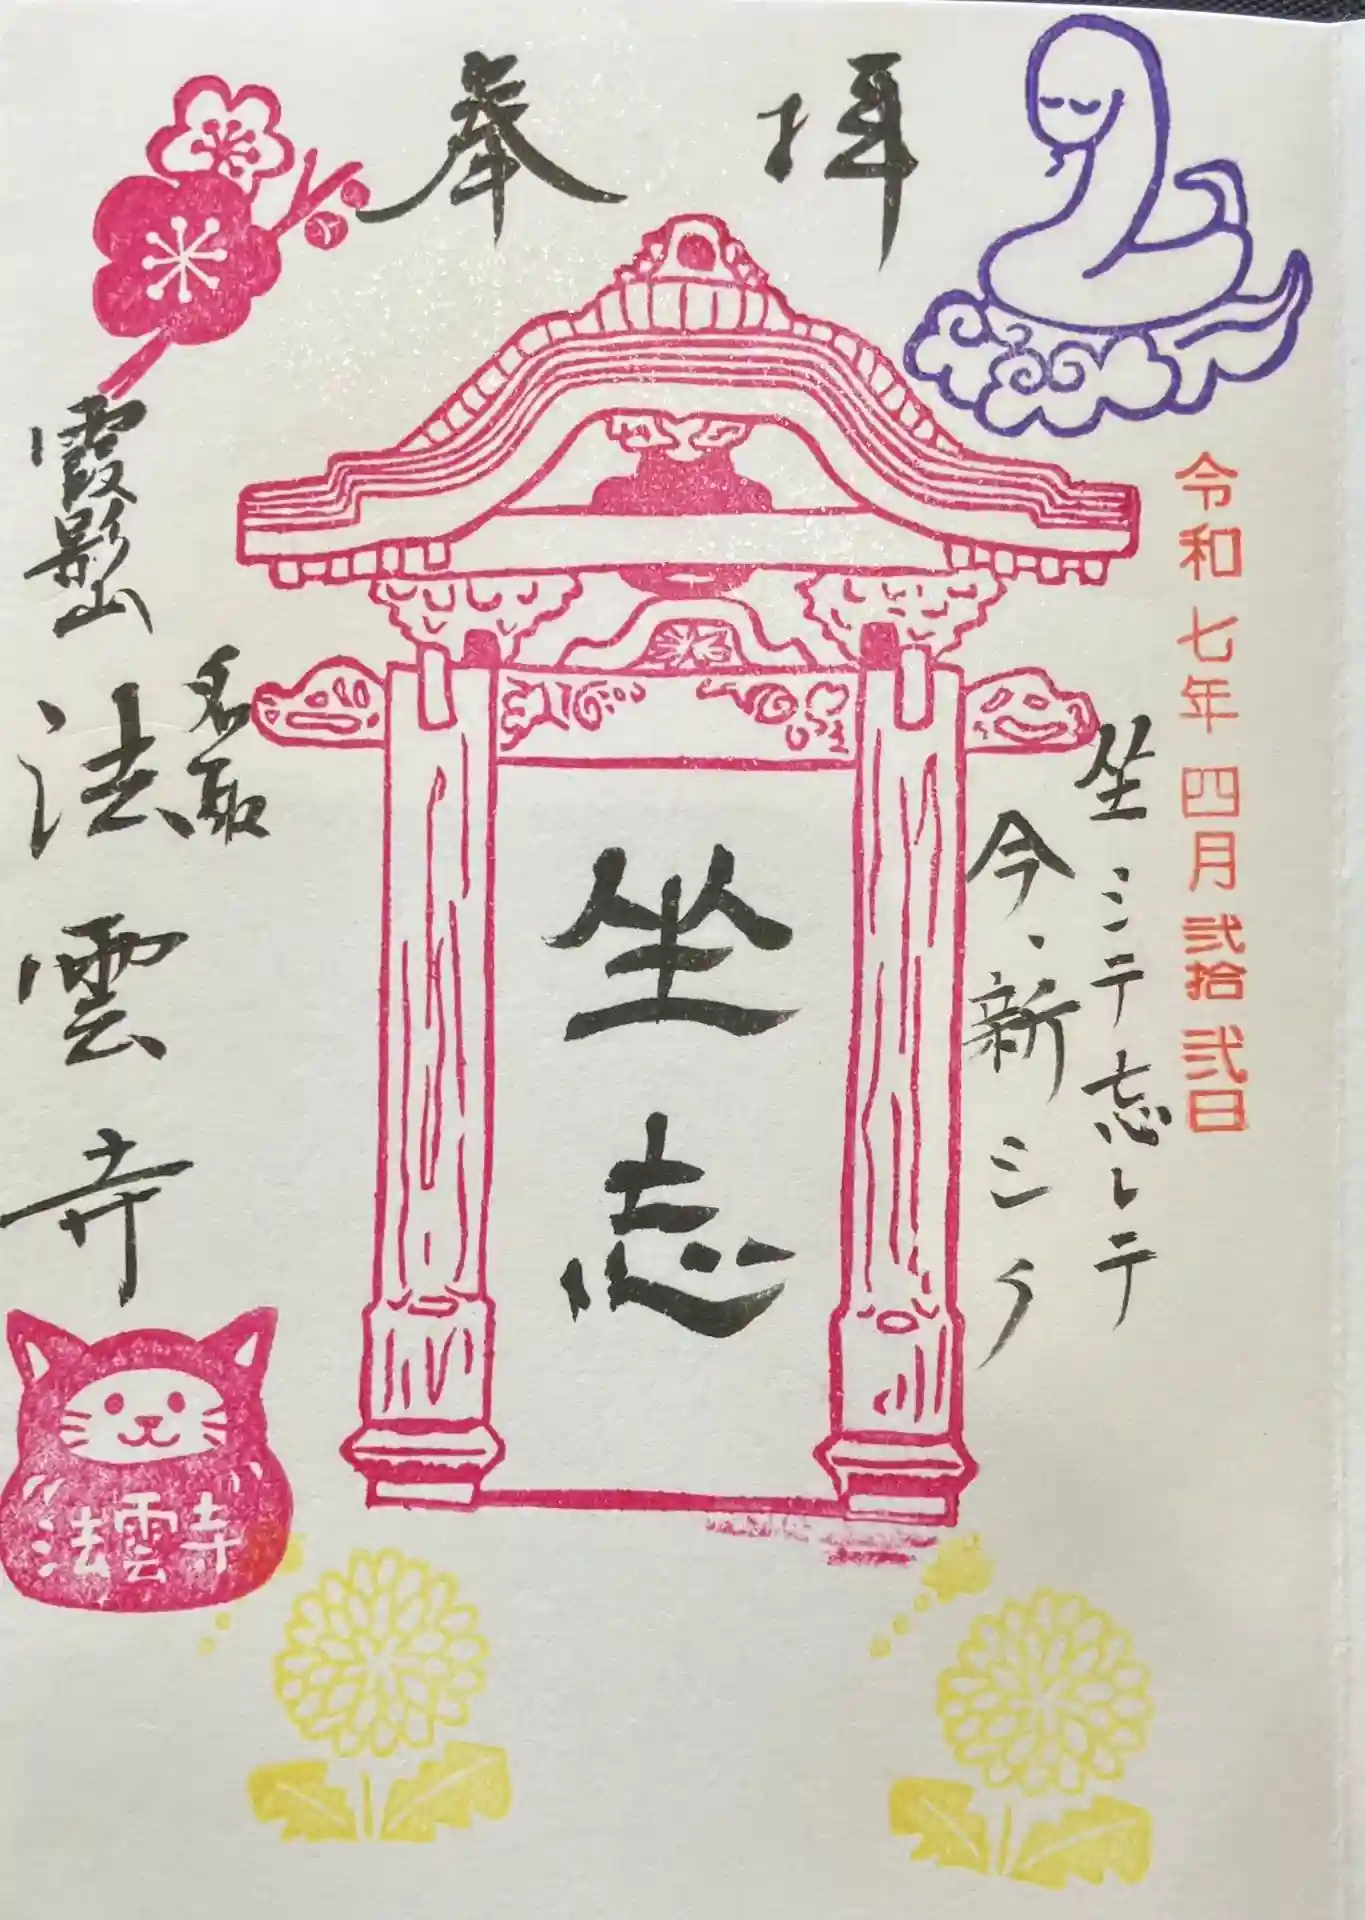 奉拝
令和七年四月弐拾弐日
坐シテ忘レテ
今、新シク
坐忘
名取
霞影山
法雲寺
法雲寺